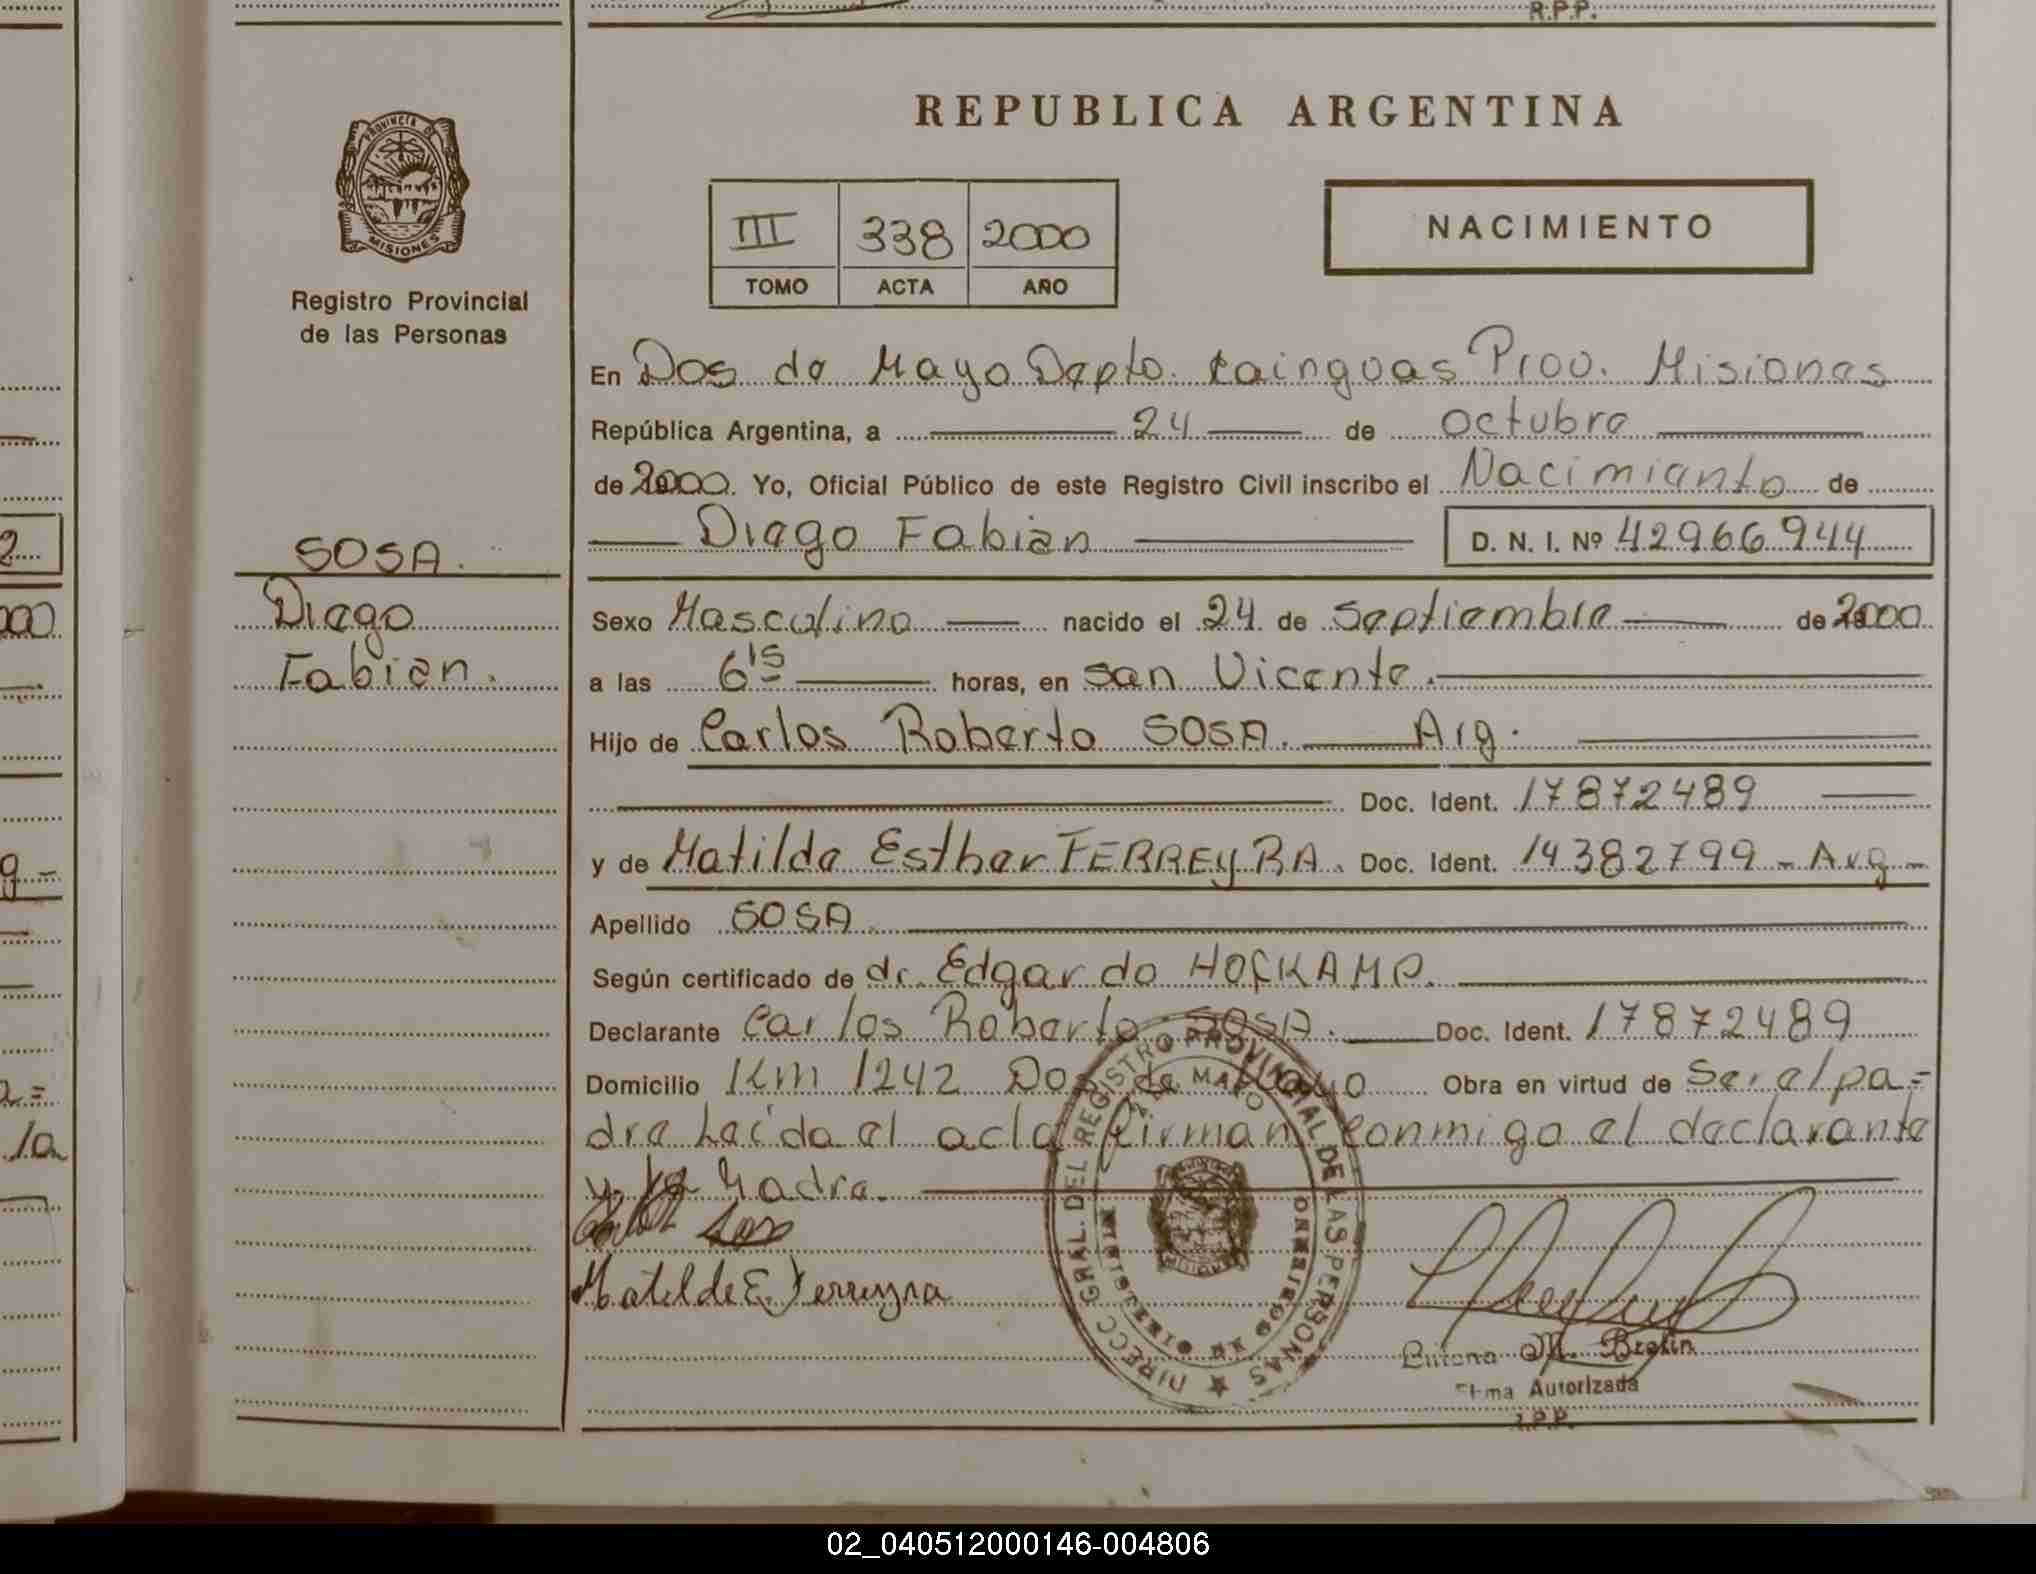 R.P.P.
REPUBLICA ARGENTINA
PROVINCIA DE
MISIONES
Registro Provincial
de las Personas
III 338 2000
TOMO ACTA AÑO
NACIMIENTO
En Dos de Mayo Depto. Cainguas Prov. Misiones
República Argentina, a 24 de octubre
de 2000. Yo, Oficial Público de este Registro Civil inscribo el Nacimiento de
Diego Fabián D. N. I. Nº 42966944
SOSA.
Diego
Fabián.
Sexo Masculino nacido el 24 de Septiembre de 2000
a las 6¹⁵ horas, en San Vicente.
Hijo de Carlos Roberto SOSA. Arg.
Doc. Ident. 17872489
y de Matilde Esther FERREYRA. Doc. Ident. 14382799 - Arg -
Apellido SOSA.
Según certificado de dr. Edgardo HOFKAMP.
Declarante Carlos Roberto SOSA. Doc. Ident. 17872489
Domicilio Km 1242 Dos de Mayo Obra en virtud de Ser el pa=
dre Leída el acta firman conmigo el declarante
y la Madre.
Carlos Sosa
Matilde E. Ferreyra
DIRECC GRAL. DEL REGISTRO PROVINCIAL DE LAS PERSONAS
2 DE MAYO
MISIONES
M. Brolin
Firma Autorizada
R.P.P.
02_040512000146-004806